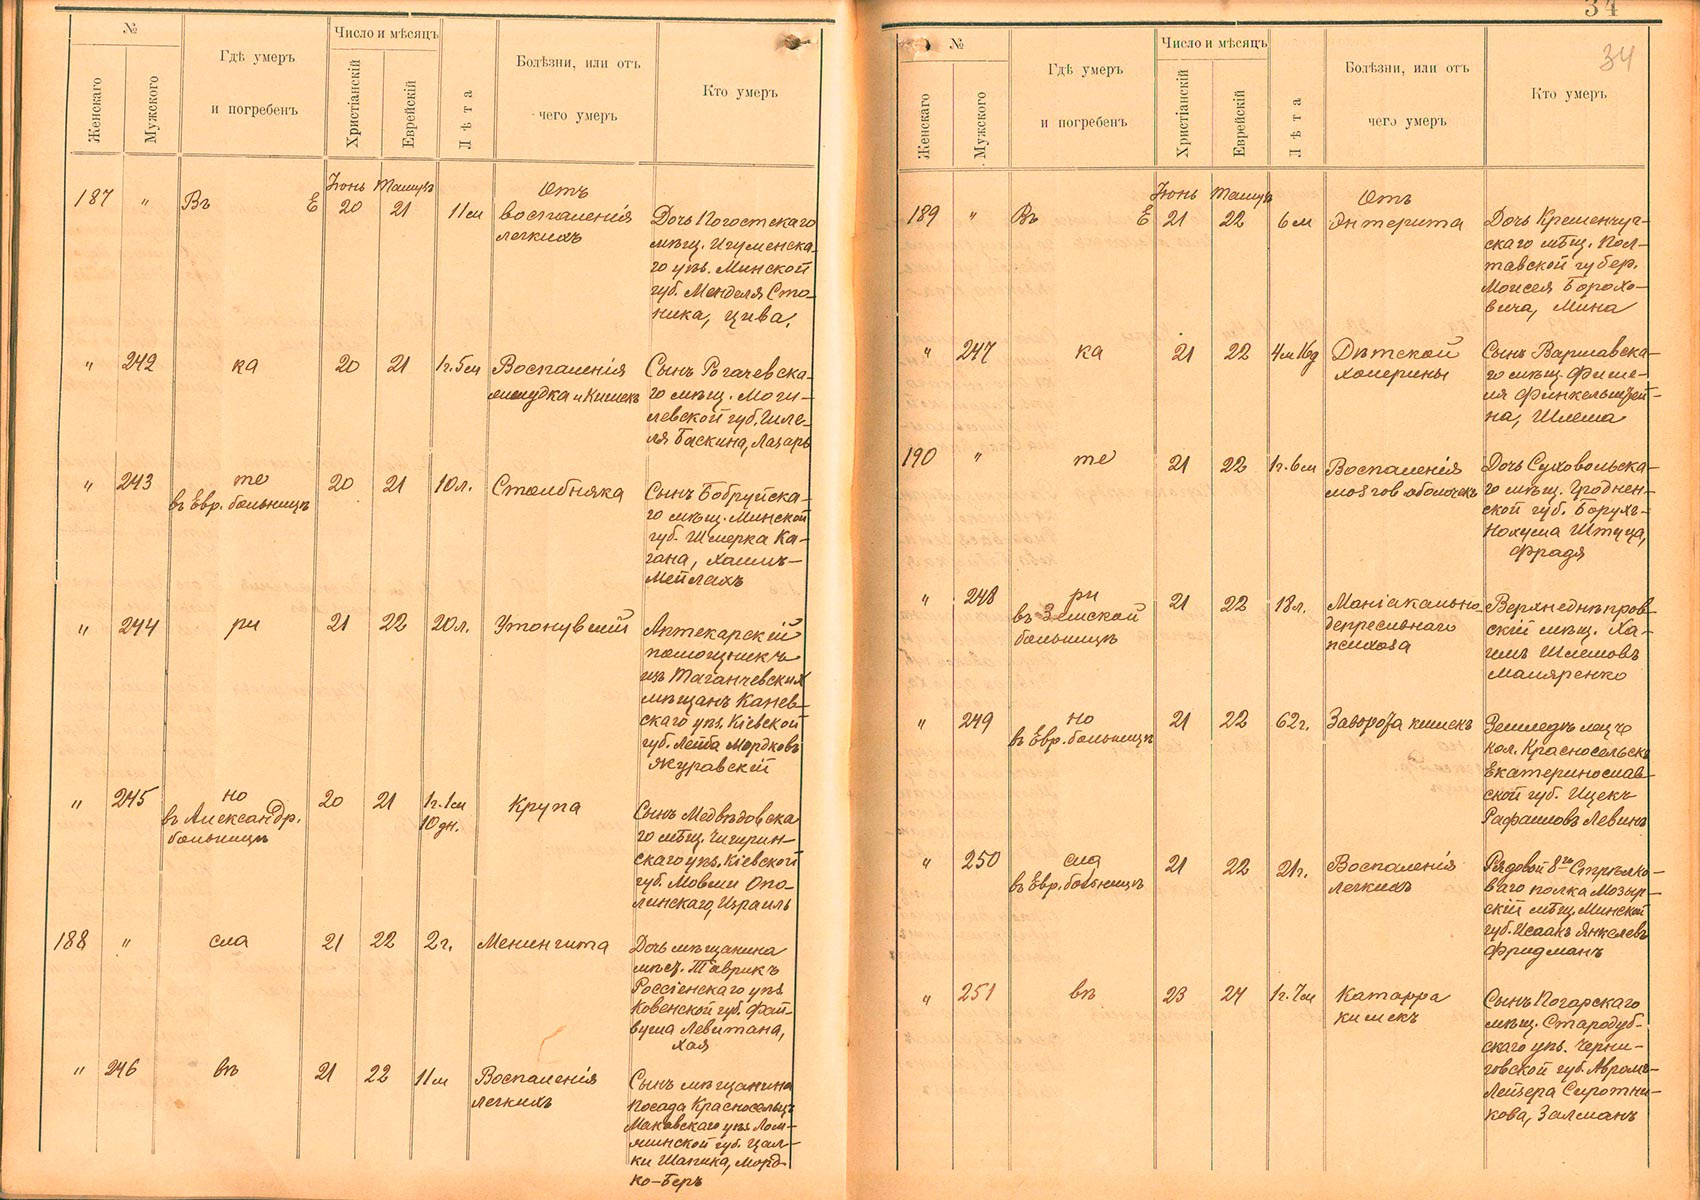 №
Женскаго
Мужского
Гдѣ умеръ
и погребенъ
Число и мѣсяцъ
Христіанскій
Еврейскій
Лѣта
Болѣзни, или отъ
чего умеръ
Кто умеръ
187 " Въ Е
Іюнь Тамузъ
20 21 11 м
Отъ
воспаленія
легкихъ
Дочь Погостскаго
мѣщ. Игуменска-
го уѣз. Минской
губ. Менделя Сто-
ника, Цива.
" 242 ка 20 21 1г. 5м
Воспаленія
желудка и Кишекъ
Сынъ Рогачевска-
го мѣщ. Моги-
левской губ. Гиле-
ля Баскина, Лазарь
" 243 те
въ Евр. больницѣ
20 21 10л. Столбняка
Сынъ Бобруйска-
го мѣщ. Минской
губ. Шмерка Ка-
гана, Хаимъ-
Мейлахъ
" 244 ри 21 22 20л. Утонувшій
Аптекарскій
помощникъ
изъ Таганчевских
мѣщанъ Канев-
скаго уѣз. Кіевской
губ. Лейба Мордковъ
Якуравскій
" 245 но
въ Александр.
больницѣ
20 21 1г. 1м
10 дн.
Крупа
Сынъ Медвѣдовска
го мѣщ. Чигирин-
скаго уѣз. Кіевской
губ. Мовши Опо-
линскаго, Израиль
188 " сла 21 22 2г. Менингита
Дочь мѣщанина
мѣст. Таврикъ
Россіенскаго уѣз.
Ковенской губ. Фай-
вуша Левитана,
Хая
" 246 вѣ 21 22 11м
Воспаленія
легкихъ
Сынъ мѣщанина
посада Красносельцъ
Маковскаго уѣз. Лом-
жинской губ. Цал-
ки Шапика, Морд-
ко-Беръ
34
34
№
Женскаго
Мужского
Гдѣ умеръ
и погребенъ
Число и мѣсяцъ
Христіанскій
Еврейскій
Лѣта
Болѣзни, или отъ
чего умеръ
Кто умеръ
189 " Въ Е
Іюнь Тамузъ
21 22 6м
Отъ
Энтерита
Дочь Кременчуг-
скаго мѣщ. Пол-
тавской губер.
Моисея Борохо-
вича, Мина
" 247 ка 21 22 4м 16д
Дѣтской
холерины
Сынъ Варшавска-
го мѣщ. Фише-
ля Финкельштей-
на, Шлема
190 " те 21 22 1г. 6м
Воспаленія
мозгов. оболочекъ
Дочь Суховольска-
го мѣщ. Гроднен-
ской губ. Борухъ-
Нохума Штуца,
Фрадя
" 248 ри
въ Земской
больницѣ
21 22 18л.
Маніакально
депресивнаго
психоза
Верхнеднѣпров-
скій мѣщ. Ха-
имъ Шлемовъ
Маляренко
" 249 но
въ Евр. больницѣ
21 22 62г. Заворота кишекъ
Земледѣлецъ
кол. Красносельск.
Екатеринослав-
ской губ. Ицекъ
Рафаиловъ Левинъ
" 250 сла
въ Евр. больницѣ
21 22 21г.
Воспаленія
легкихъ
Рядовой 8го Стрѣлко-
ваго полка Мозыр-
скій мѣщ. Минской
губ. Исаакъ Янкелевъ
Фридманъ
" 251 вѣ 23 24 1г. 7м
Катарра
кишекъ
Сынъ Погарскаго
мѣщ. Стародуб-
скаго уѣз. Черни-
говской губ. Аврома-
Лейзера Сиротни-
кова, Залманъ